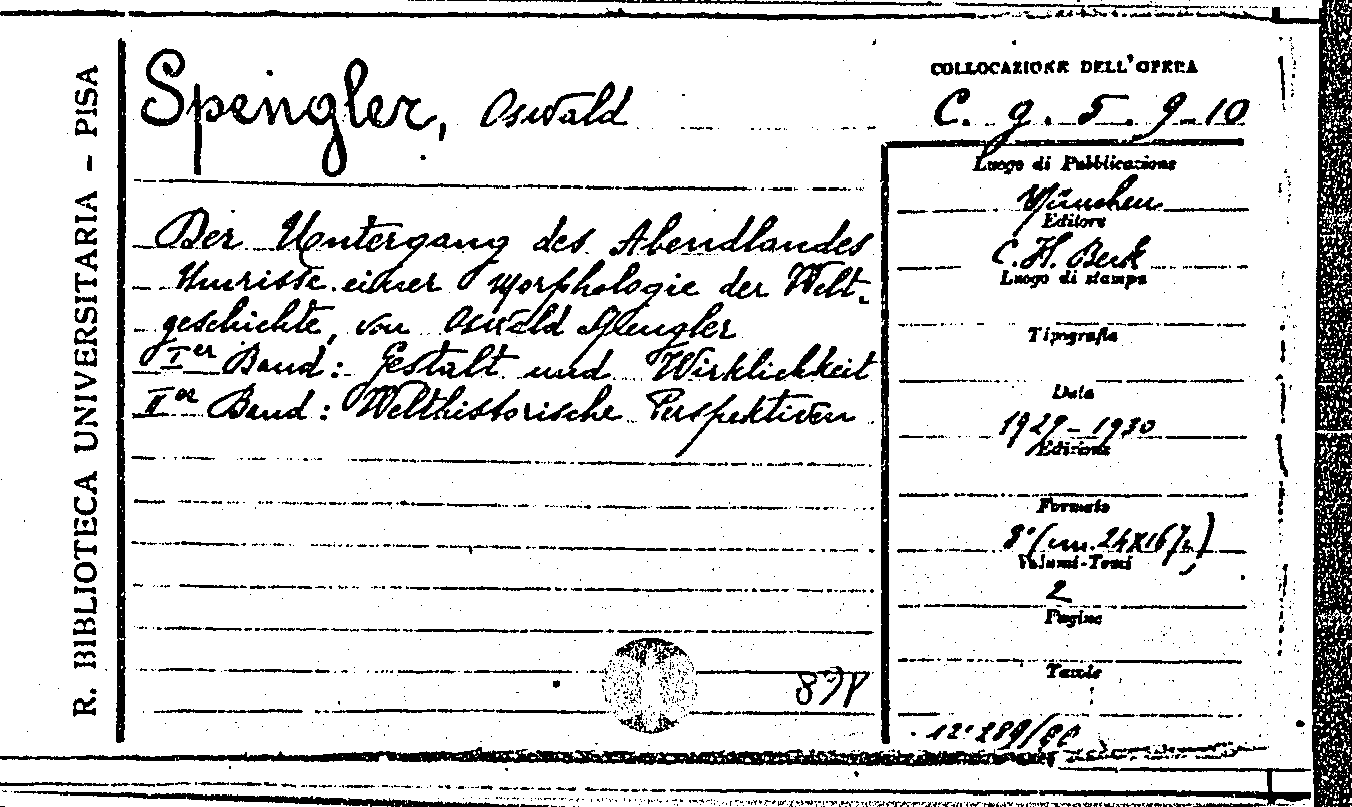 R. BIBLIOTECA UNIVERSITARIA - PISA
Spengler, Oswald
Der Untergang des Abendlandes
Umrisse einer Morphologie der Welt-
geschichte, von Oswald Spengler
Ier Band: Gestalt und Wirklichkeit
IIer Band: Welthistorische Perspektiven
COLLOCAZIONE DELL'OPERA
C. g. 5. 9-10
Luogo di Pubblicazione
München
Editore
C. H. Beck
Luogo di stampa
Tipografia
Data
1929-1930
Edizione
Formato
8° (cm. 24x16½)
Volumi-Tomi
2
Pagine
Tavole